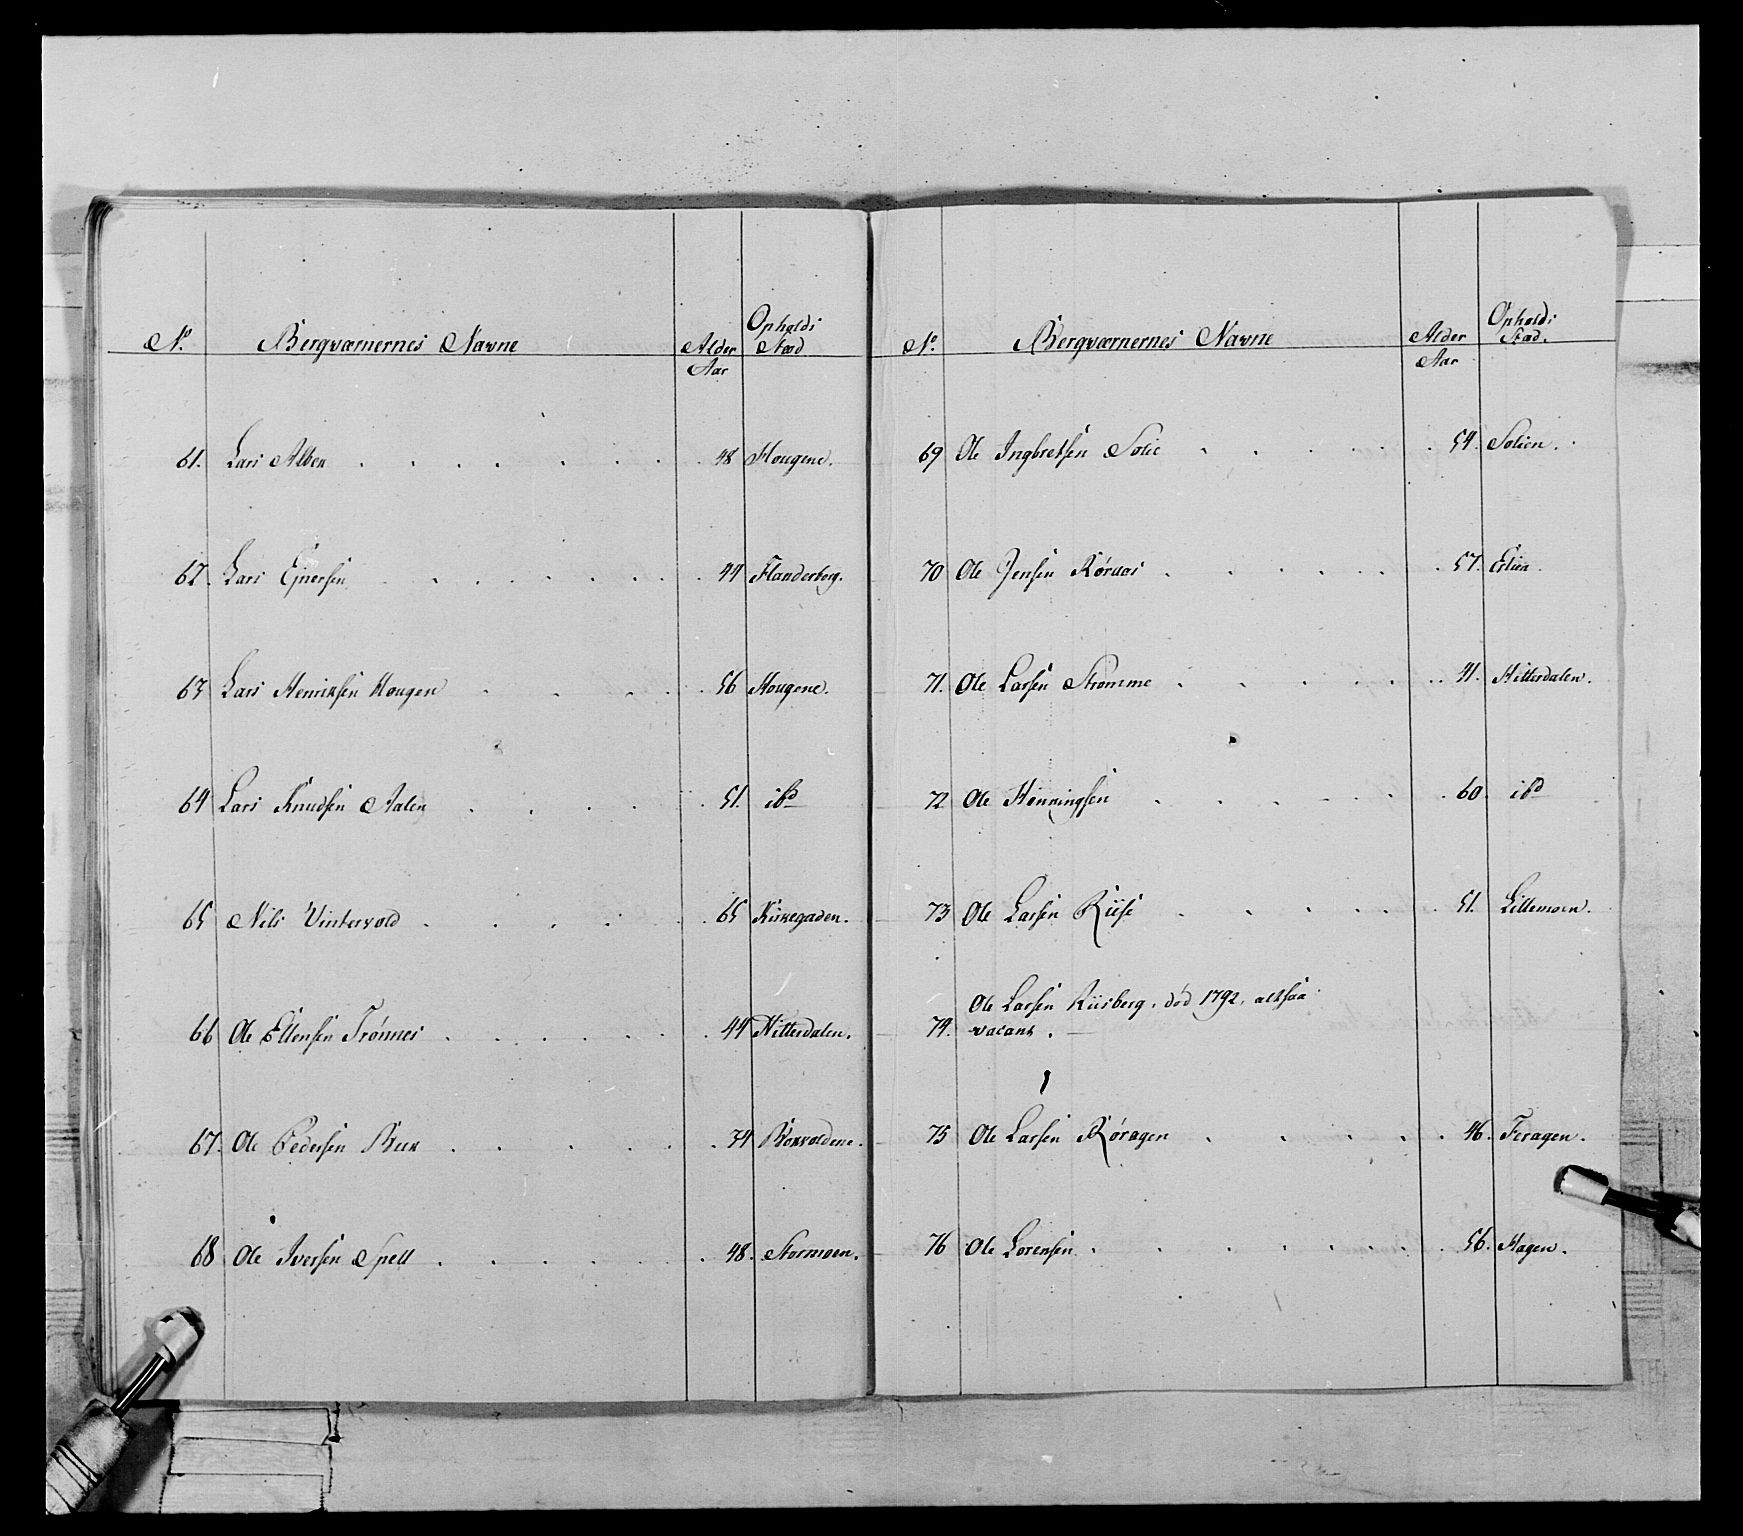 No. Bergværnernes Navne Alder Aar Opholds Stæd
61. Lars Alben 48 Hougene.
62. Lars Ejnersen 44 Flanderborg.
63 Lars Henriksen Hougen 56 Hougene.
64 Lars Knudsen Aalen 51. ibd
65 Nils Vintervold 65 Kirkegaden.
66 Ole Ellensen Trønnes 44 Hitterdalen.
67. Ole Pedersen Beck 34 Borvoldene.
68 Ole Iversen Spell 48. Stormoen.
No. Bergværnernes Navne Alder Aar Opholds Stæd.
69 Ole Ingbretsen Solie 54. Solien.
70 Ole Jensen Røruas 57. Erlien.
71. Ole Larsen Strømme 41. Hitterdalen.
72 Ole Henningsen 60. ibd
73 Ole Larsen Riise 51. Lillemoen.
Ole Larsen Riisberg. død 1792, altsaa
74. vacant. —
75 Ole Larsen Røragen 46. Feragen.
76 Ole Lorensen 56. Hagen.